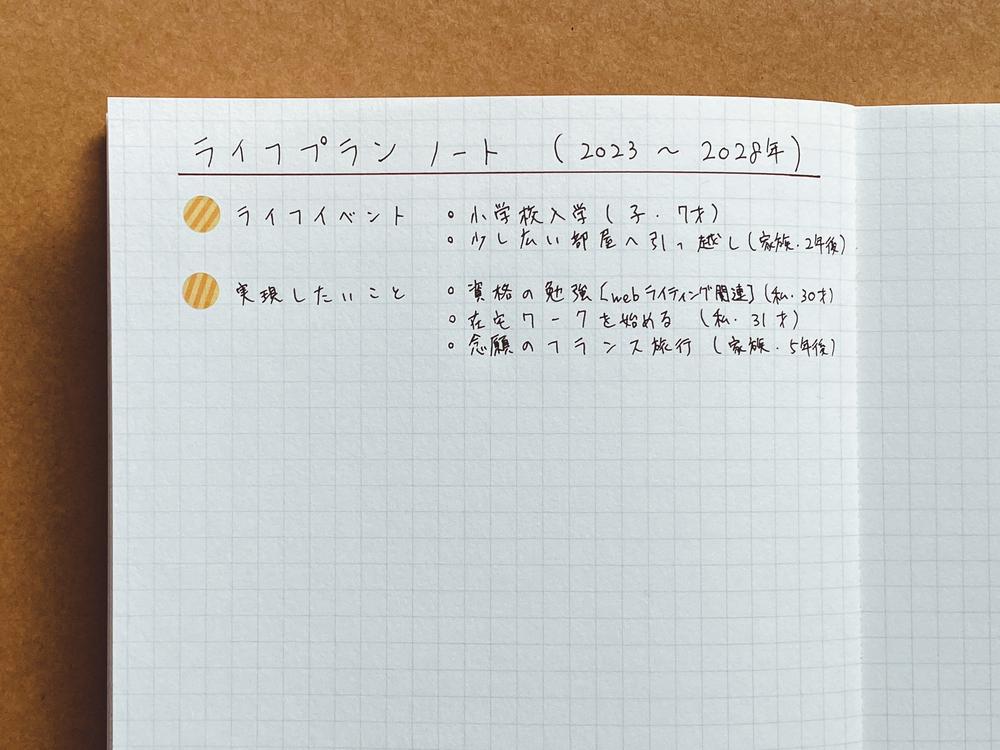 ライフプランノート (2023 ~ 2028年)
ライフイベント ◦ 小学校入学 (子・7才)
◦ 少し広い部屋へ引っ越し (家族・2年後)
実現したいこと ◦ 資格の勉強 [webライティング関連] (私・30才)
◦ 在宅ワークを始める (私・31才)
◦ 念願のフランス旅行 (家族・5年後)